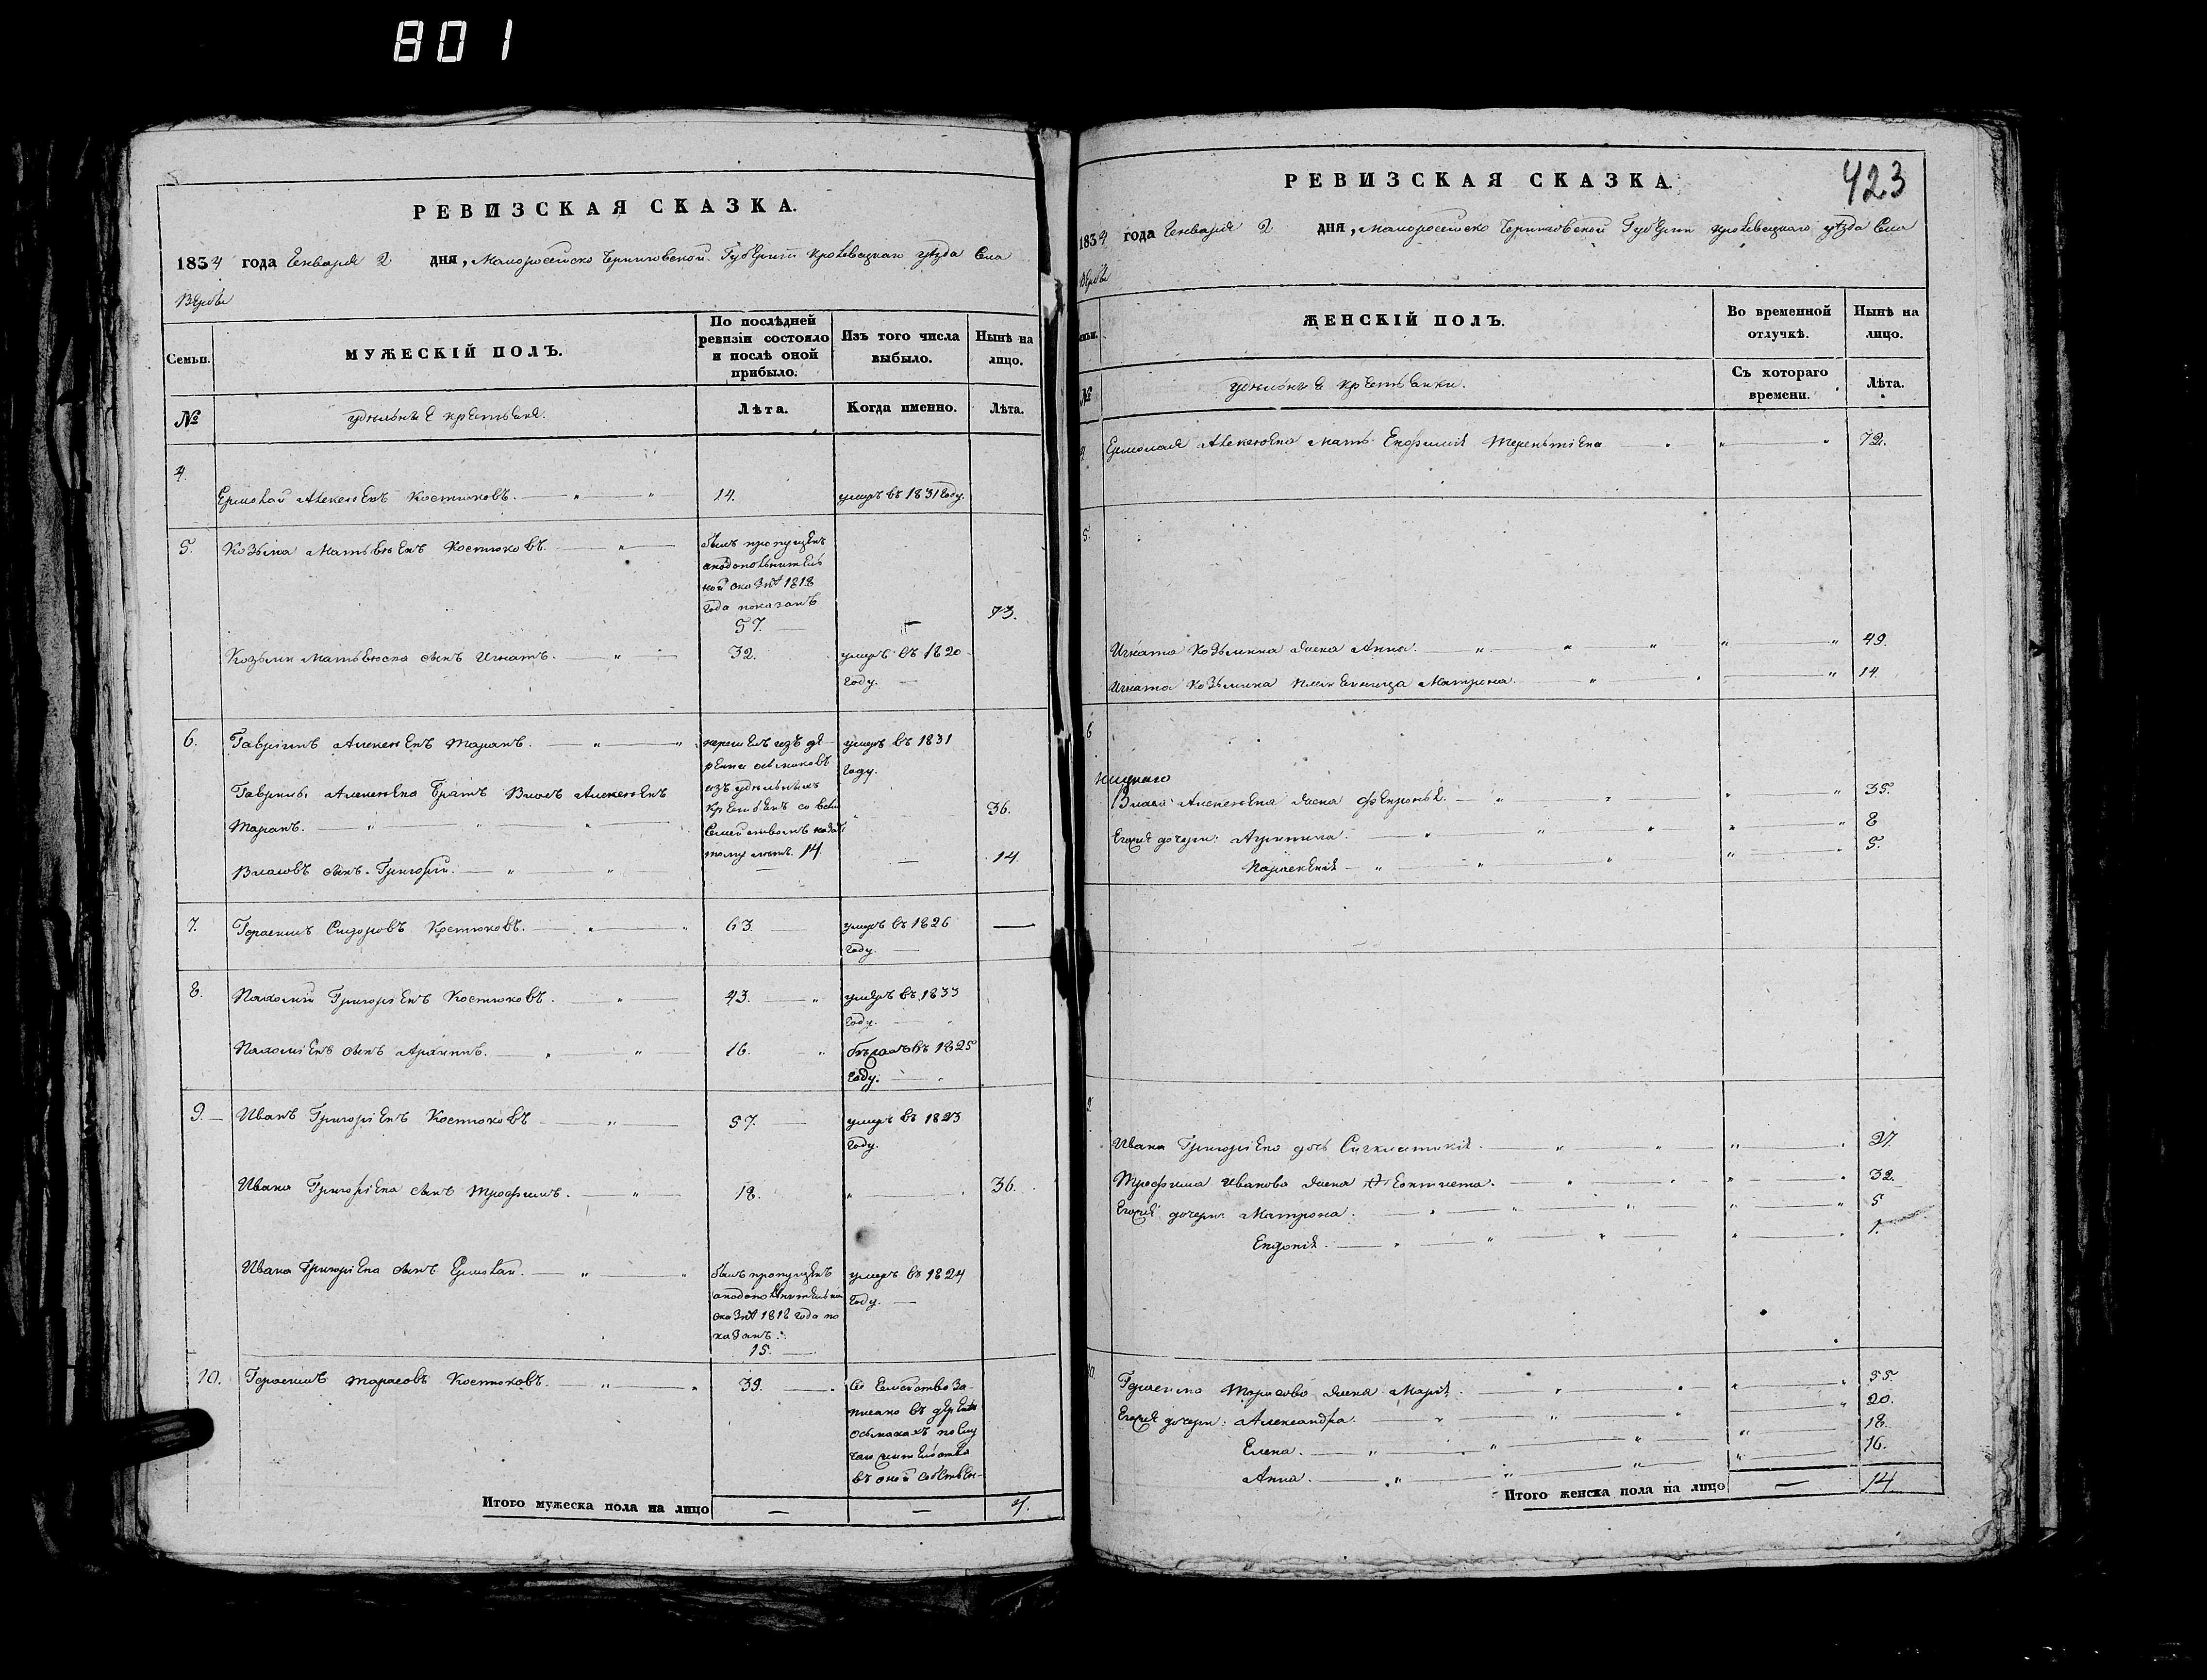 801
РЕВИЗСКАЯ СКАЗКА.
1834 года Генваря 2 дня, Малоросейско Черниговской Губернии Кролевецкаго уезда Села
Вербы
Семьи.
МУЖЕСКІЙ ПОЛЪ.
По послѣдней ревизіи состояло и послѣ оной прибыло.
Изъ того числа выбыло.
Нынѣ на лицо.
№
удельные крестьяне.
Лѣта.
Когда именно.
Лѣта.
4.
Ермолай Алексеевъ Костюковъ.
14.
умеръ въ 1831 году.
5.
Козьма Матвеевъ Костюковъ.
былъ пропущенъ
а подополнитель
ной сказкѣ 1818
года показанъ
57.
73.
Козьми Матвеева сынъ Игнатъ.
32.
умеръ въ 1820
году.
6.
Гаврiилъ Алексеевъ Таранъ.
умеръ въ 1831
году.
Гаврила Алексеева братъ Власъ Алексеевъ
Таранъ.
из удельныхъ
крестьянъ со всем
семействомъ
14.
36.
Власовъ сынъ Григорій.
14.
7.
Герасимъ Сидоровъ Костюковъ.
63.
умеръ въ 1826
году.
8.
Пахомій Григорiевъ Костюковъ.
43.
умеръ въ 1833
году.
Пахомiевъ сынъ Архипъ.
16.
бежалъ въ 1825
году.
9.
Иванъ Григорiевъ Костюковъ
57.
умеръ въ 1823
году.
Ивана Григорiева сынъ Трофимъ.
18.
36.
Ивана Григорiева сынъ Ермолай.
былъ пропущенъ
сказкѣ 1818 года по
казанъ.
15.
умеръ въ 1824
году.
10.
Герасимъ Тарасовъ Костюковъ.
39.
Итого мужеска пола на лицо
4.
РЕВИЗСКАЯ СКАЗКА.
423
1834 года Генваря 2 дня, Малоросейско Черниговской Губернии Кролевецкаго уезда Села
Вербы
ЖЕНСКІЙ ПОЛЪ.
Во временной отлучкѣ.
Нынѣ на лицо.
№
удельные крестьянки.
Съ котораго времени.
Лѣта.
4
Ермолая Алексеева мать Евфимия Терентiева
72.
5.
Игната Козьмина жена Анна.
49.
Игната Козьмина племянница Матрона.
14.
6
Власа Алексеева жена Февронья.
35.
Егоже дочери: Агрипина.
8
Параскевiя
5.
9.
Ивана Григорiева дочь Сигклитикiя.
27.
Трофима Иванова жена
32.
Егоже дочери: Матрона.
5
Евдокiя.
1.
10
Герасима Тарасова жена Марiя.
55.
Егоже дочери: Александра.
20.
Елена.
18.
Анна.
16.
Итого женска пола на лицо
14.